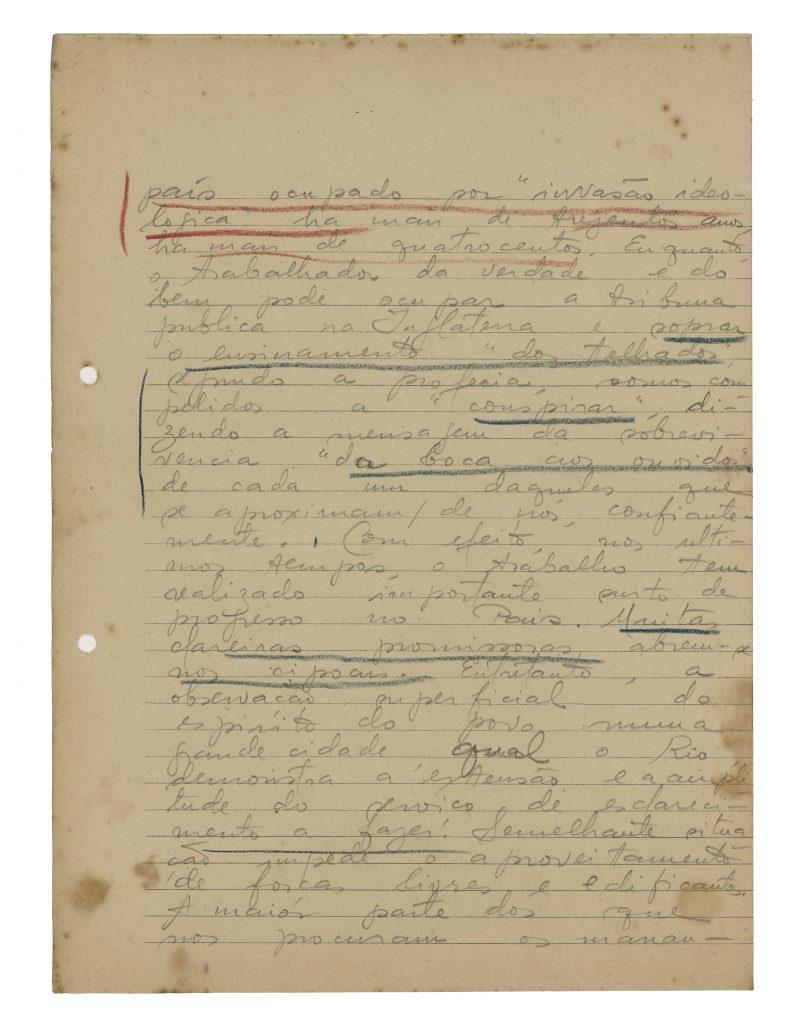 país ocupado por "invasão ideo-
logica" ha mais de trezentos anos,
ha mais de quatrocentos. Enquanto
o trabalhador da verdade e do
bem pode ocupar a tribuna
publica na Inglaterra e soprar
o ensinamento "dos telhados",
segundo a profecia, somos com
pelidos a "conspirar", di-
zendo a mensagem da sobrevi-
vencia "da boca aos ouvidos"
de cada um daqueles que
se aproximam/de nós, confiante-
mente. Com efeito, nos ulti-
mos tempos, o trabalho tem
realizado importante surto de
progresso no País. Muitas
clareiras promissoras, abrem-se
nos cipoais. Entretanto, a
observação superficial do
espirito do povo numa
grande cidade qual o Rio
demonstra a extensão e a ampli
tude do serviço de esclareci-
mento a fazer. Semelhante situa
ção impede o aproveitamento
de forças livres e edificantes.
A maiór parte dos que
nos procuram os manan-